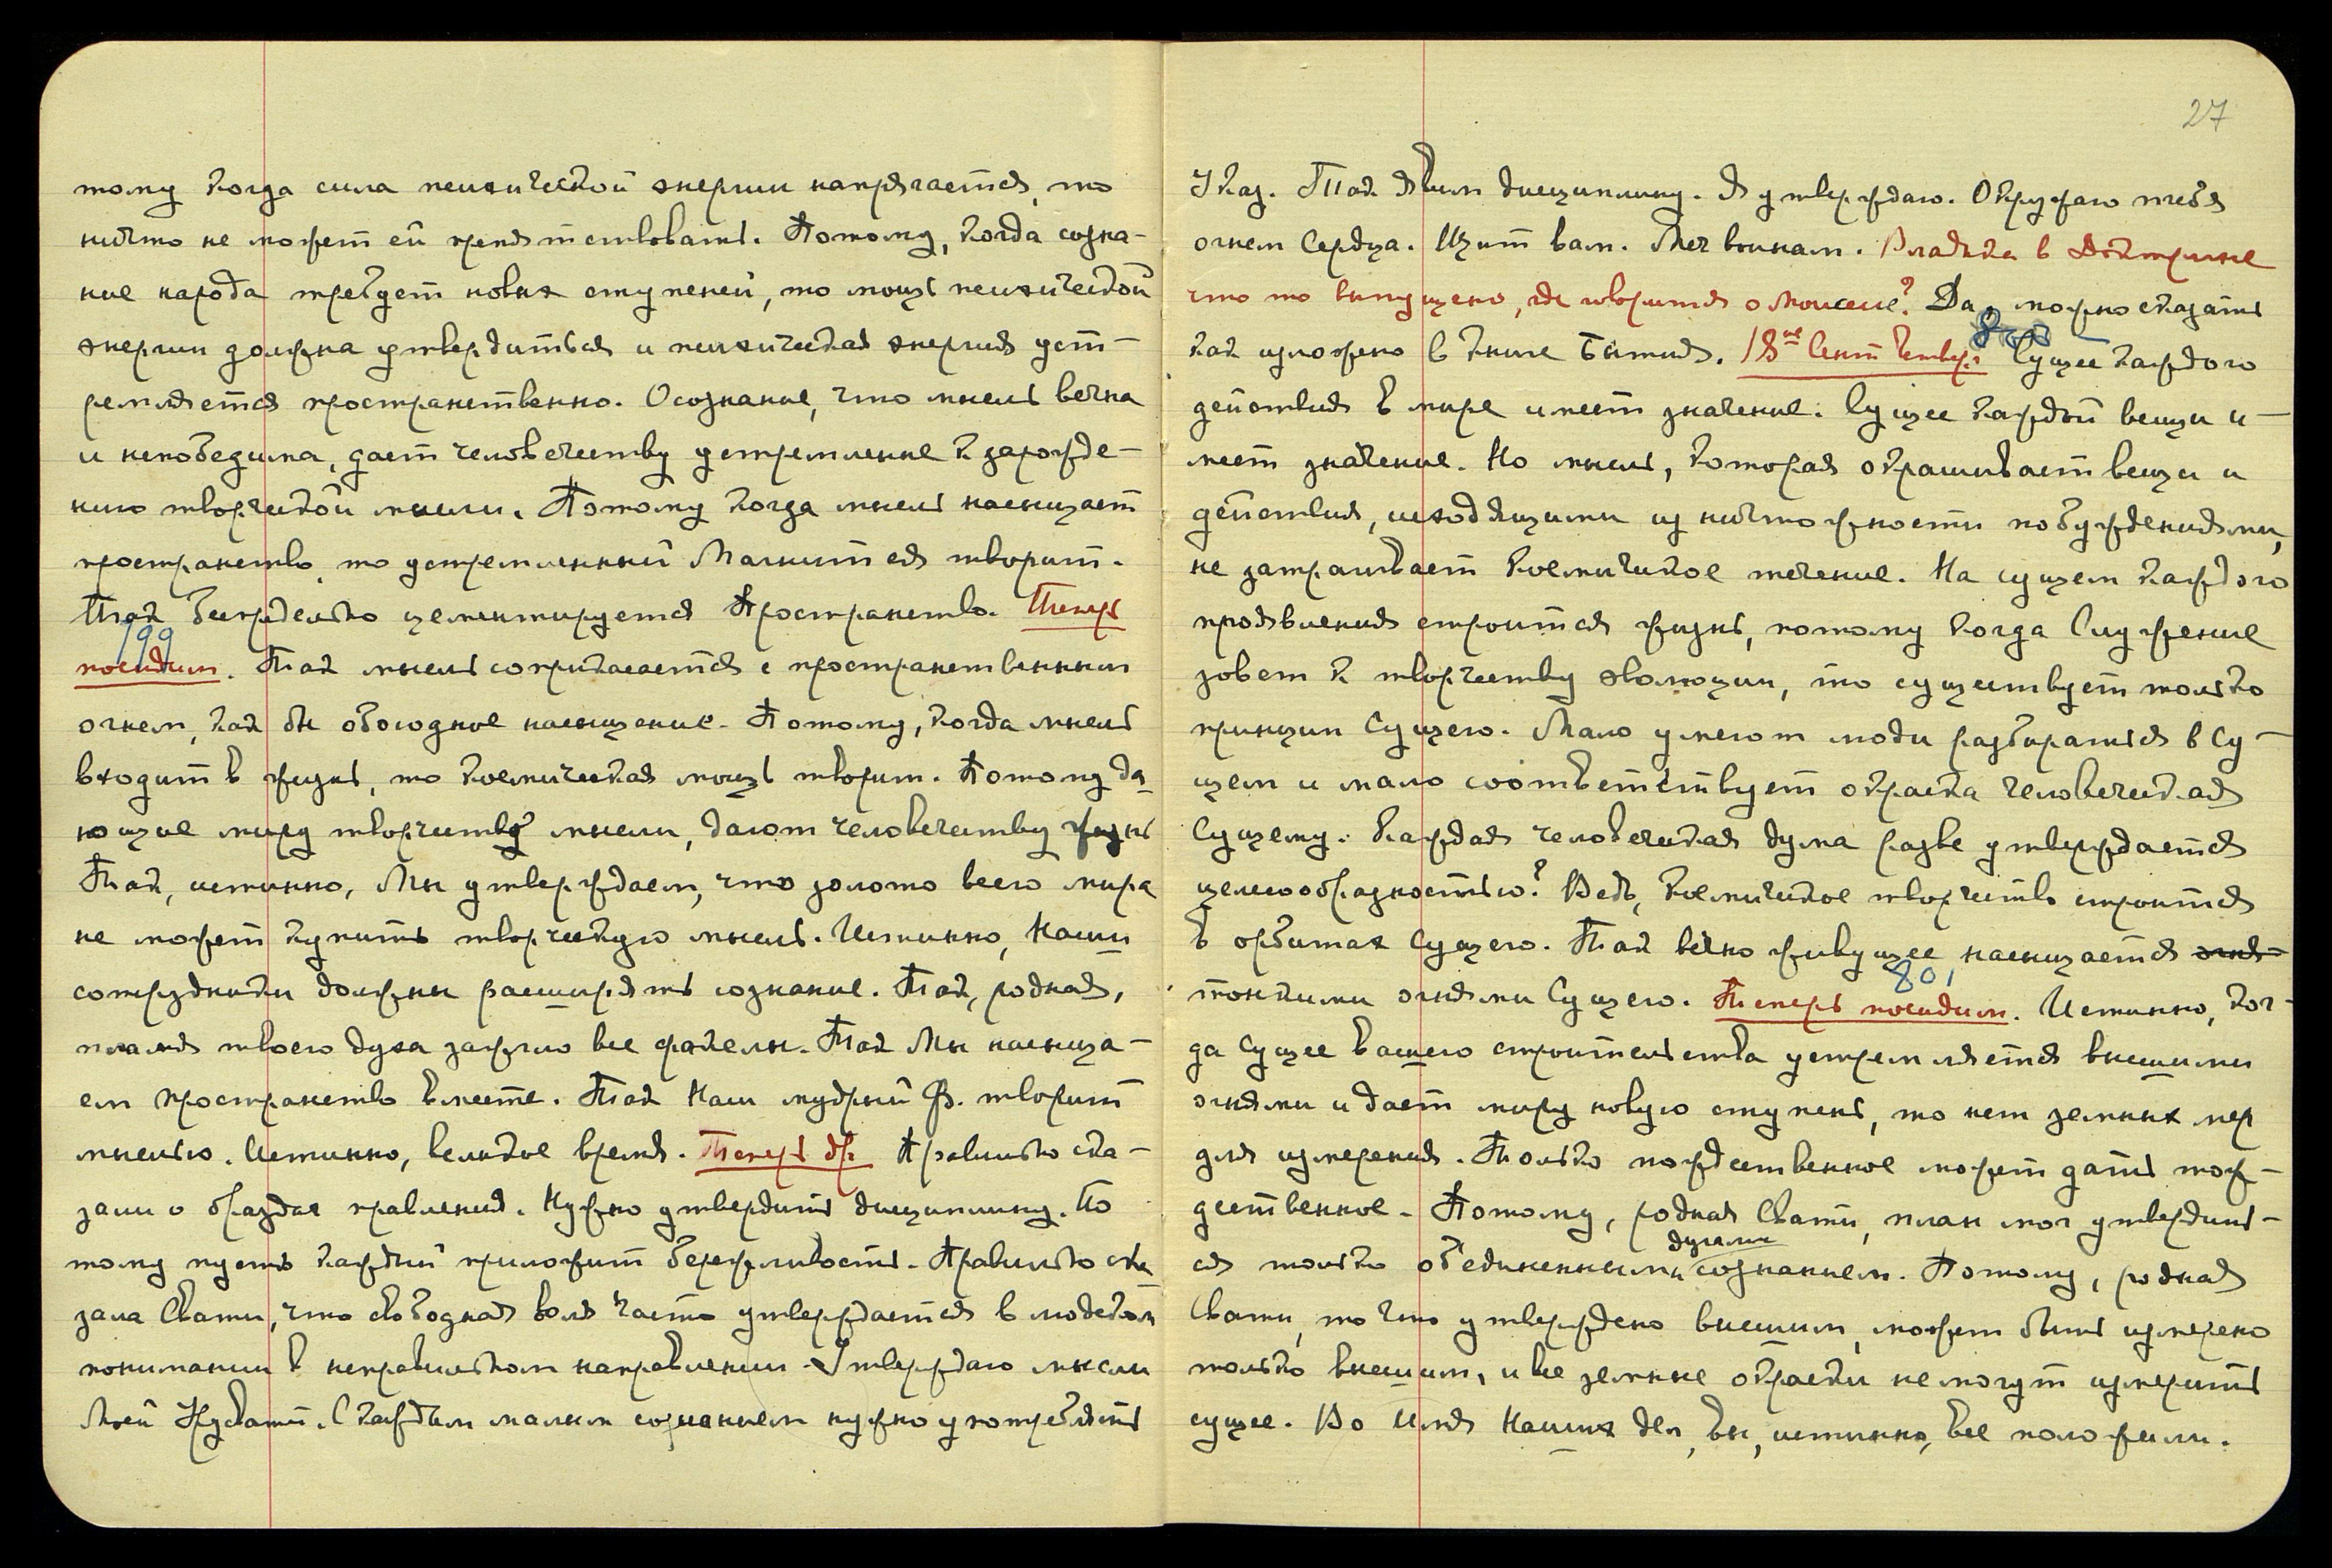 тому когда сила психической энергии напрягается, то
ничто не может ей препятствовать. Потому, когда созна-
ние народа требует новых ступеней, то мощь психической
энергии должна утвердиться и психическая энергия уст-
ремляется пространственно. Осознание, что мысль вечна
и непобедима, дает человечеству устремление к зарожде-
нию творческой мысли. Потому когда мысль насыщает
пространство, то устремленный Магнит ея творит.
Так беспредельно цементируется Пространство. Теперь
199
посидим. Так мысль соприкасается с пространственным
огнем, как бы обоюдное насыщение. Потому, когда мысль
входит в жизнь, то космическая мощь творит. Потому да
ющие миру творчество мысли, дают человечеству жизнь
Так, истинно, Мы утверждаем, что золото всего мира
не может купить творческую мысль. Истинно, Наши
сотрудники должны расширять сознание. Так, родная,
пламя твоего духа зажгло все факелы. Так Мы насыща-
ем пространство вместе. Так Наш мудрый Ф. творит
мыслью. Истинно, великое время. Теперь др. Правильно ска-
зали о браздах правления. Нужно утвердить дисциплину. По
тому пусть каждый приложит бережливость. Правильно ска
зала Свати, что свободная воля часто утверждается в людском
понимании в неправильном направлении. Утверждаю мысли
Моей Урусвати. С каждым малым сознанием нужно употреблять
27
Указ. Так явим дисциплину. Я утверждаю. Окружаю тебя
огнем Сердца. Щит вам. Меч воинам. Владыка в Доктрине
что то выпущено, где говорится о Моисее? Да, можно сказать
как изложено в книге Бытия. 18ое Сент Четверг. Сущее каждого
действия в мире имеет значение. Сущее каждой вещи и-
меет значение. Но мысль, которая окрашивает вещи и
действия, исходящими из ничтожности побуждениями,
не затрагивает космическое течение. На сущем каждого
проявления строится жизнь, потому когда Служение
зовет к творчеству эволюции, то существует только
принцип Сущего. Мало умеют люди разбираться в Су-
щем и мало соответствует окраска человеческая
Сущему. Каждая человеческая дума разве утверждается
целесообразностью? Ведь, космическое творчество строится
в орбитах Сущего. Так вечно живущее насыщается огня-
801
тонкими огнями Сущего. Теперь посидим. Истинно, ког-
да Сущее вашего строительства устремляется высшими
огнями и дает миру новую ступень, то нет земных мер
для измерения. Только тождественное может дать тож-
дественное. Потому, родная Свати, план мог утвердить-
духами
ся только объединенными сознанием. Потому, родная
Свати, то что утверждено высшим, может быть измерено
только высшим, и все земные окраски не могут измерить
сущее. Во Имя Наших дел, вы, истинно, все положили.